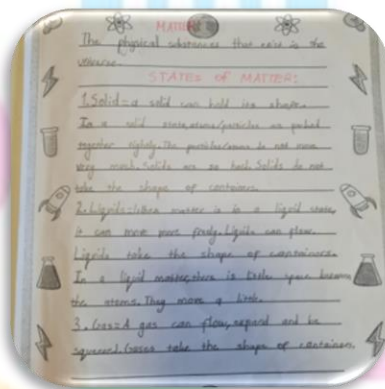 MATTER
The physical substances that exist in the
universe.
STATES OF MATTER:
1. Solid = a solid can hold its shape.
In a solid state, atoms/particles are packed
together tightly. The particles/atoms do not move
very much. Solids are so hard. Solids do not
take the shape of containers.
2. Liquids = When matter is in a liquid state,
it can move more freely. Liquids can flow.
Liquids take the shape of containers.
In a liquid matter, there is little space between
the atoms. They move a little.
3. Gas = A gas can flow, expand and be
squeezed. Gases take the shape of containers.